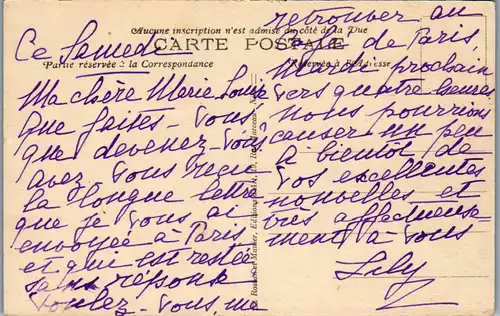 Aucune inscription n'est admise du côté de la Vue
CARTE POSTALE
Partie réservée à la Correspondance
Réservée à l'Adresse
Ce Samedi
Ma chère Marie Louise
Que faites-vous,
que devenez-vous,
avez vous reçu
la longue lettre
que je vous ai
envoyée à Paris
et qui est restée
sans réponse
Voulez-vous me
retrouver au
de Paris,
Mardi prochain
vers quatre heures
nous pourrions
causer un peu
à bientôt de
vos excellentes
nouvelles et
très affectueuse-
ment à vous
Lily